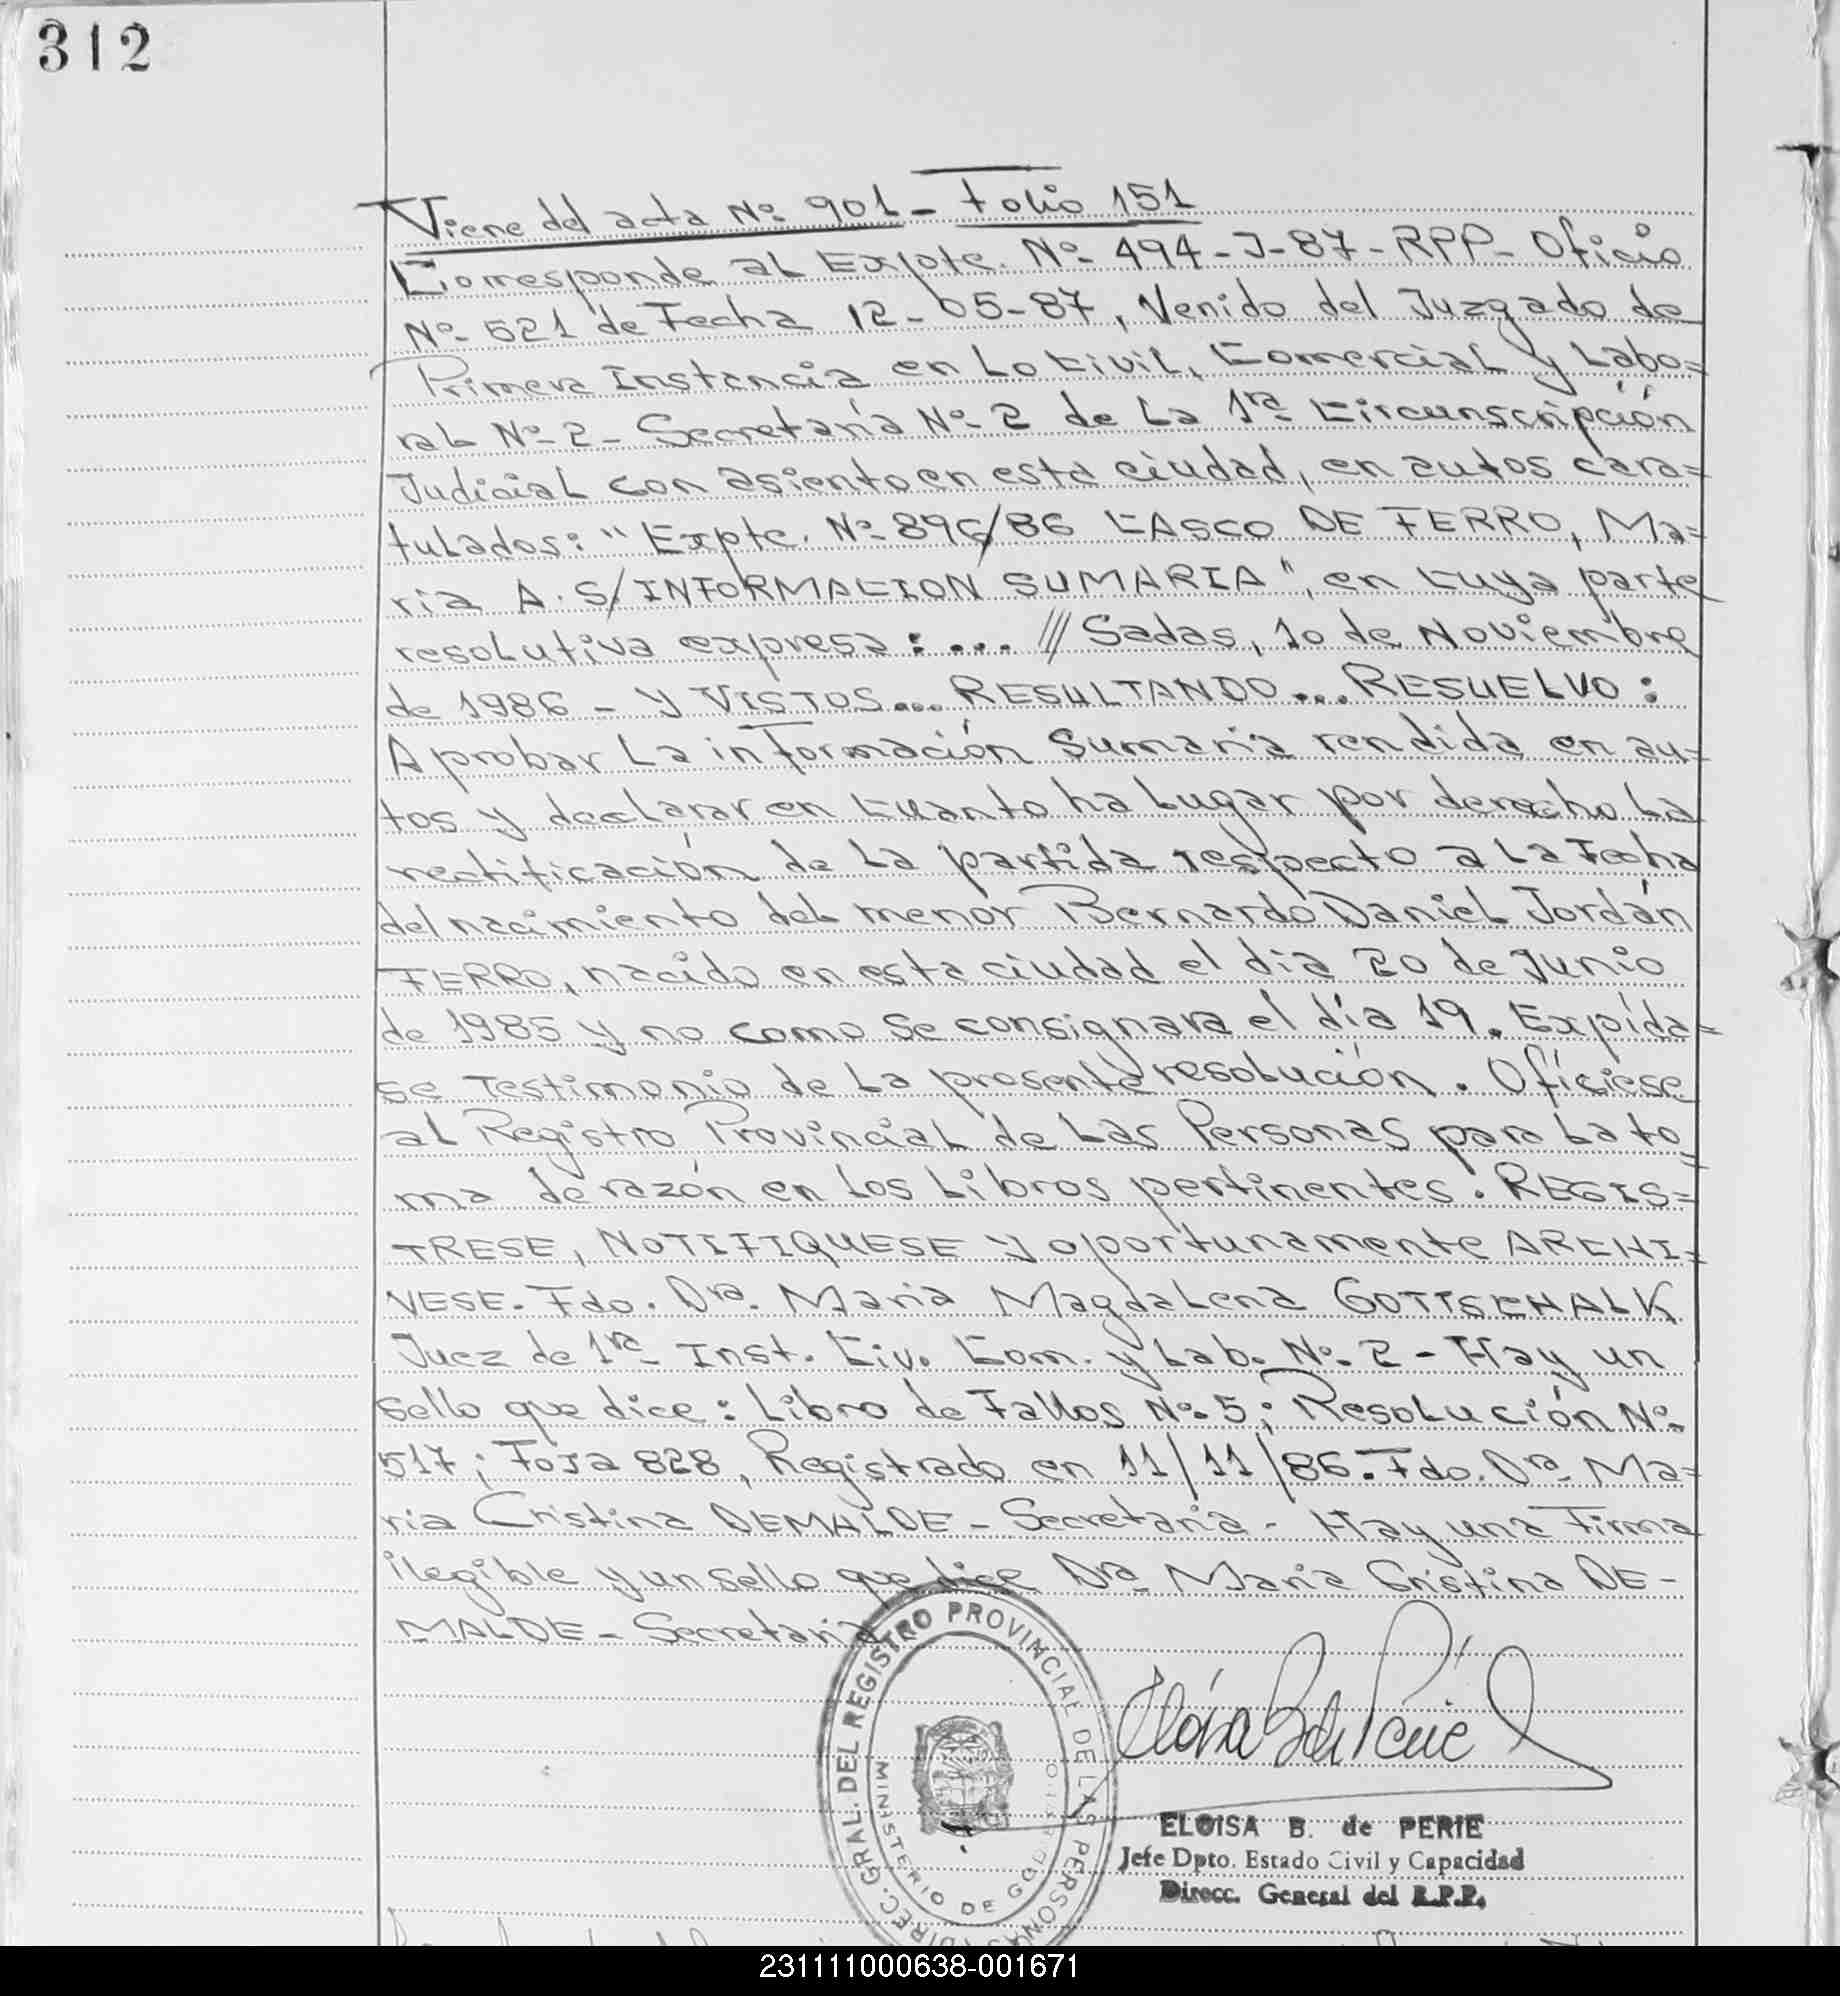 312
Viene del acta Nº 901 - Folio 151
Corresponde al Expte. Nº 494-J-87-RPP- Oficio
Nº 521 de Fecha 12-05-87, Venido del Juzgado de
Primera Instancia en Lo Civil, Comercial y Labo=
ral Nº 2 - Secretaría Nº 2 de La 1ra Circunscripción
Judicial con asiento en esta ciudad, en autos cara=
tulados: "Expte. Nº 896/86 CASCO DE FERRO, Ma=
ria A. S/INFORMACION SUMARIA", en cuya parte
resolutiva expresa: ... /// Sadas, 10 de Noviembre
de 1986 - Y VISTOS... RESULTANDO... RESUELVO:
Aprobar La información Sumaria rendida en au=
tos y declarar en cuanto ha Lugar por derecho La
rectificación de La partida respecto a La Fecha
del nacimiento del menor Bernardo Daniel Jordán
FERRO, nacido en esta ciudad el día 20 de Junio
de 1985 y no como se consignara el día 19. Expída=
se Testimonio de La presente resolución. Ofíciese
al Registro Provincial de Las Personas para La to=
ma de razón en Los Libros pertinentes. REGIS=
TRESE, NOTIFIQUESE y oportunamente ARCHI=
VESE. Fdo. Dra. Maria Magdalena GOTTSCHALK
Juez de 1ra Inst. Civ. Com. y Lab. Nº 2 - Hay un
sello que dice: Libro de Fallos Nº 5; Resolución Nº
517; Foja 828, Registrado en 11/11/86. Fdo. Dra. Ma=
ria Cristina DEMALDE - Secretaria - Hay una Firma
ilegible y un sello que dice Dra Maria Cristina DE-
MALDE - Secretaria
DIREC. GRAL. DEL REGISTRO PROVINCIAL DE LAS PERSONAS
MINISTERIO DE GOBIERNO
ELOISA B. de PERIE
Jefe Dpto. Estado Civil y Capacidad
Direcc. General del R.P.P.
231111000638-001671